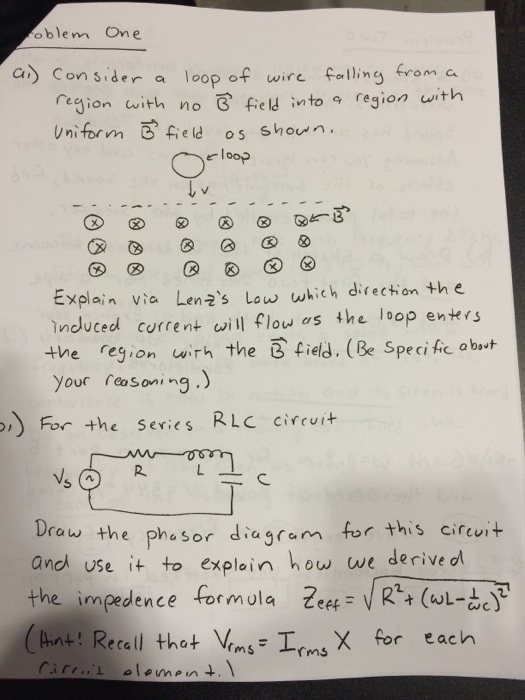 oblem One
a.) Consider a loop of wire falling from a
region with no B⃗ field into a region with
Uniform B⃗ field as shown.
loop
v
B⃗
Explain via Lenz's Law which direction the
induced current will flow as the loop enters
the region with the B⃗ field. (Be Specific about
your reasoning.)
b.) For the series RLC circuit
Vs R L C
Draw the phasor diagram for this circuit
and use it to explain how we derived
the impedence formula Zeff = √(R² + (ωL - 1/ωC)²)
(Hint! Recall that Vrms = Irms X for each
circuit element.)